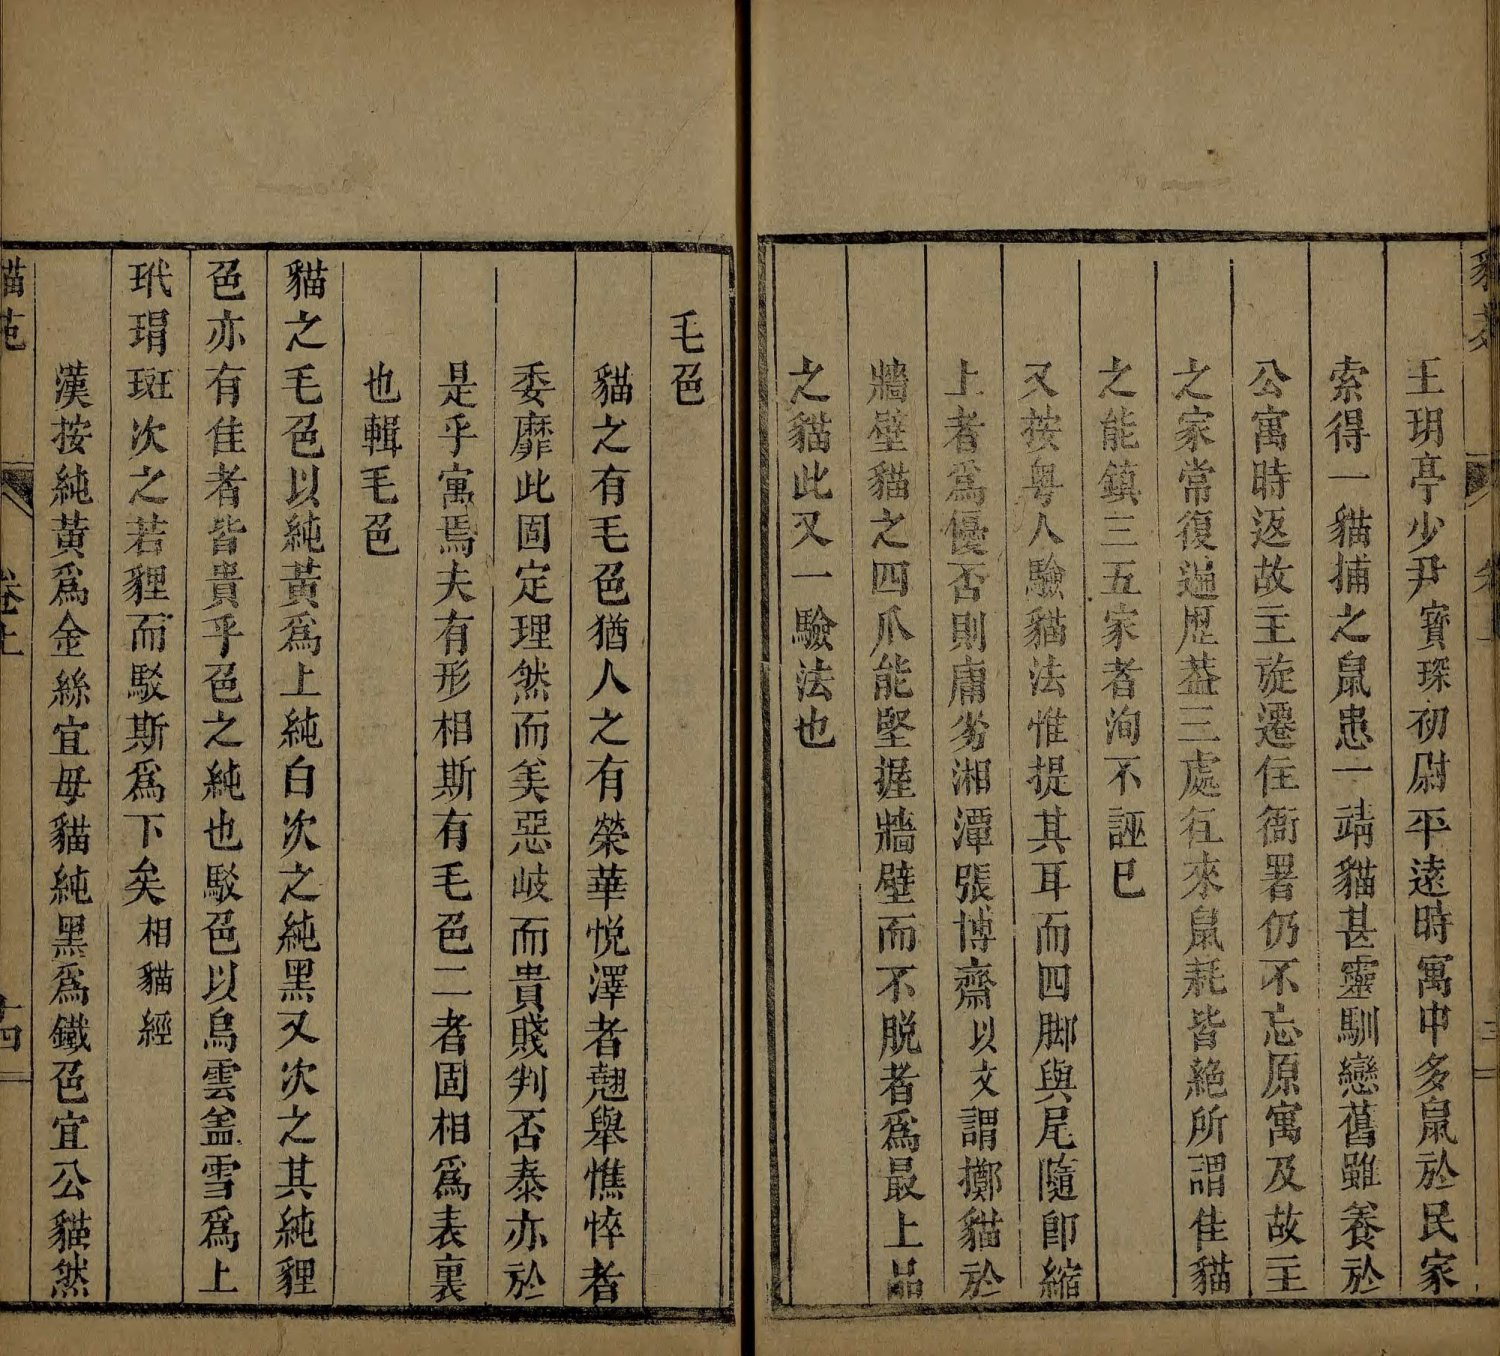 王玥亭少尹寶琛初尉平遠時寓中多鼠於民家
索得一貓捕之鼠患一靖貓甚靈馴戀舊雖養於
公寓時返故主旋遷住衙署仍不忘原寓及故主
之家常復遍歷葢三處徃來鼠耗皆絶所謂佳貓
之能鎮三五家者洵不誣已
又按粤人驗貓法惟提其耳而四脚與尾隨卽縮
上者爲優否則庸劣湘潭張博齋以文謂擲貓於
牆壁貓之四爪能堅握牆壁而不脱者爲最上品
之貓此又一驗法也
毛色
貓之有毛色猶人之有榮華悦澤者翹舉憔悴者
委靡此固定理然而美惡岐而貴賤判否泰亦於
是乎寓焉夫有形相斯有毛色二者固相爲表裏
也輯毛色
貓之毛色以純黄爲上純白次之純黑又次之其純貍
色亦有佳者皆貴乎色之純也駁色以烏雲葢雪爲上
玳瑁斑次之若貍而駁斯爲下矣相貓經
漢按純黄爲金絲宜母貓純黑爲鐵色宜公貓然
貓苑 卷上 十四